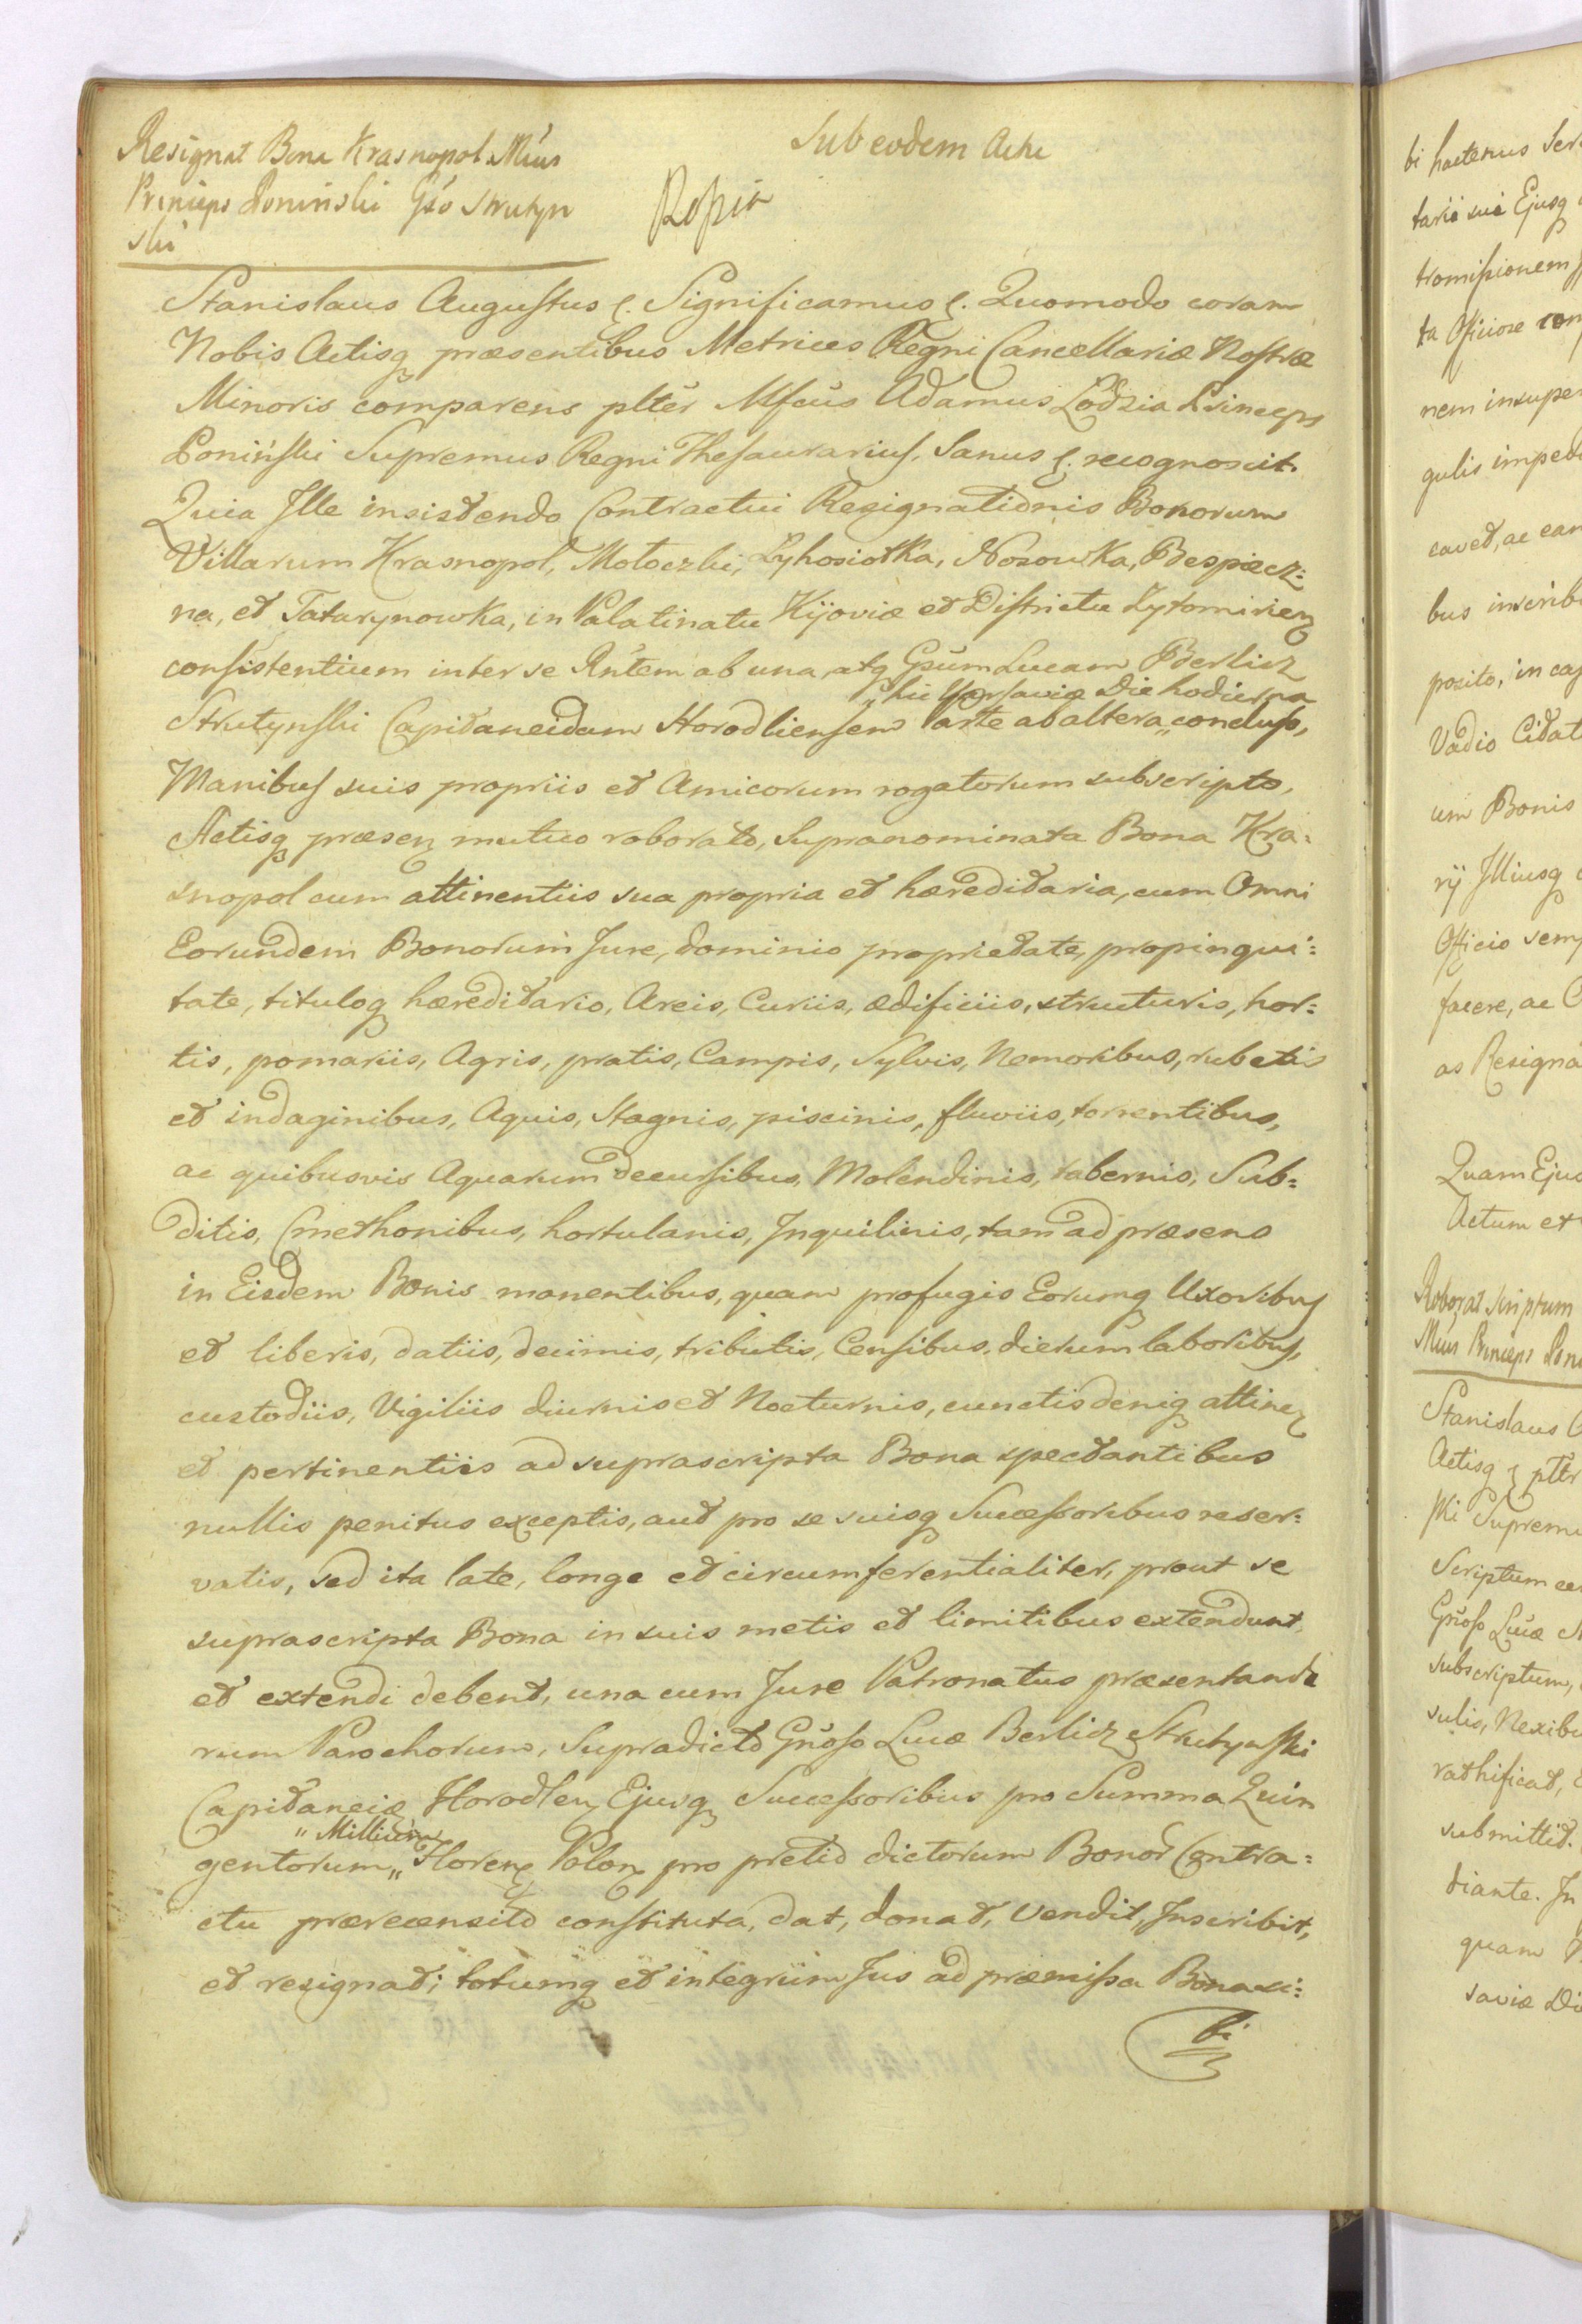 Resignat Bona Krasnopol Mcus
Princeps Poninski Gso Strutyn
ski
Sub eodem Actu
Kopia
Stanislaus Augustus &. Significamus &. Quomodo coram
Nobis Actisq præsentibus Metrices Regni Cancellariæ Nostræ
Minoris comparens plter Mfcus Adamus Lodzia Princeps
Poniński Supremus Regni Thesaurarius, Sanus &. recognovit.
Quia Ille insistendo Contractui Resignationis Bonorum
Villarum Krasnopol, Motoczki, Lyhosiolka, Nosowka, Bespiecz:
na, et Tatarynowka, in Palatinatu Kijoviæ et Districtu Zytomirien
consistentium inter se Rntem ab una, atq Gsum Lucam Berlicz
„hic Varsaviæ Die hodierna
Strutynski Capitaneidam Horodliensem Parte ab altera„ concluso,
Manibus suis propriis et Amicorum rogatorum subscripto,
Actisq præsen mutuo roborato, Supranominata Bona Kra:
snopol cum attinentiis sua propria et hæreditaria, cum Omni
Eorundem Bonorum Jure, dominio proprietate, propinqui:
tate, tituloq hæreditario, Areis, Curiis, ædificiis, structuris, hor:
tis, pomariis, Agris, pratis, Campis, Sylvis, Nemoribus, rubetis
et indaginibus, Aquis, Stagnis, piscinis, fluviis, torrentibus,
ac quibusvis Aquarum decursibus, Molendinis, tabernis, Sub:
ditis, Cmethonibus, hortulanis, Inquilinis, tam ad præsens
in Eisdem Bonis manentibus, quam profugis Eorumq Uxoribus
et liberis, datiis, decimis, tributis, Censibus, dierum laboribus,
custodiis, Vigiliis diurnis et Nocturnis, cunctis deniq attinen
et pertinentiis ad suprascripta Bona spectantibus
nullis penitus exceptis, aut pro se suisq Successoribus reser:
vatis, sed ita late, longe et circumferentialiter, prout se
suprascripta Bona in suis metis et limitibus extendunt
et extendi debent, una cum Jure Patronatus præsentando
rum Parochorum, Supradicto Gnoso Lucæ Berlicz Strutynski
Capitaneidæ Horodlen Ejusq Successoribus pro Summa Quin
„Millium
gentorum„ Floren Polon pro pretio dictorum Bonor Contra:
ctu præreceensito constituta, dat, donat, Vendit, Inscribit,
et resignat; totumq et integrum Jus ad præmissa Bona si:
bi
bi hactenus
Ejusq
tromissionem
ta Officiose
nem insuper
gulis
cavet, ac
bus
posito, in
Vadio
um Bonis
rij Illiusq
Officio
facere, ac
as
Quam
Actum et
Roborat scriptum
Mcus Princeps
Stanislaus
Actisq & plter
ski
Scriptum
Gnoso Lucæ
subscriptum,
sulis,
rathificat,
submittit.
diante. In
quam
saviæ